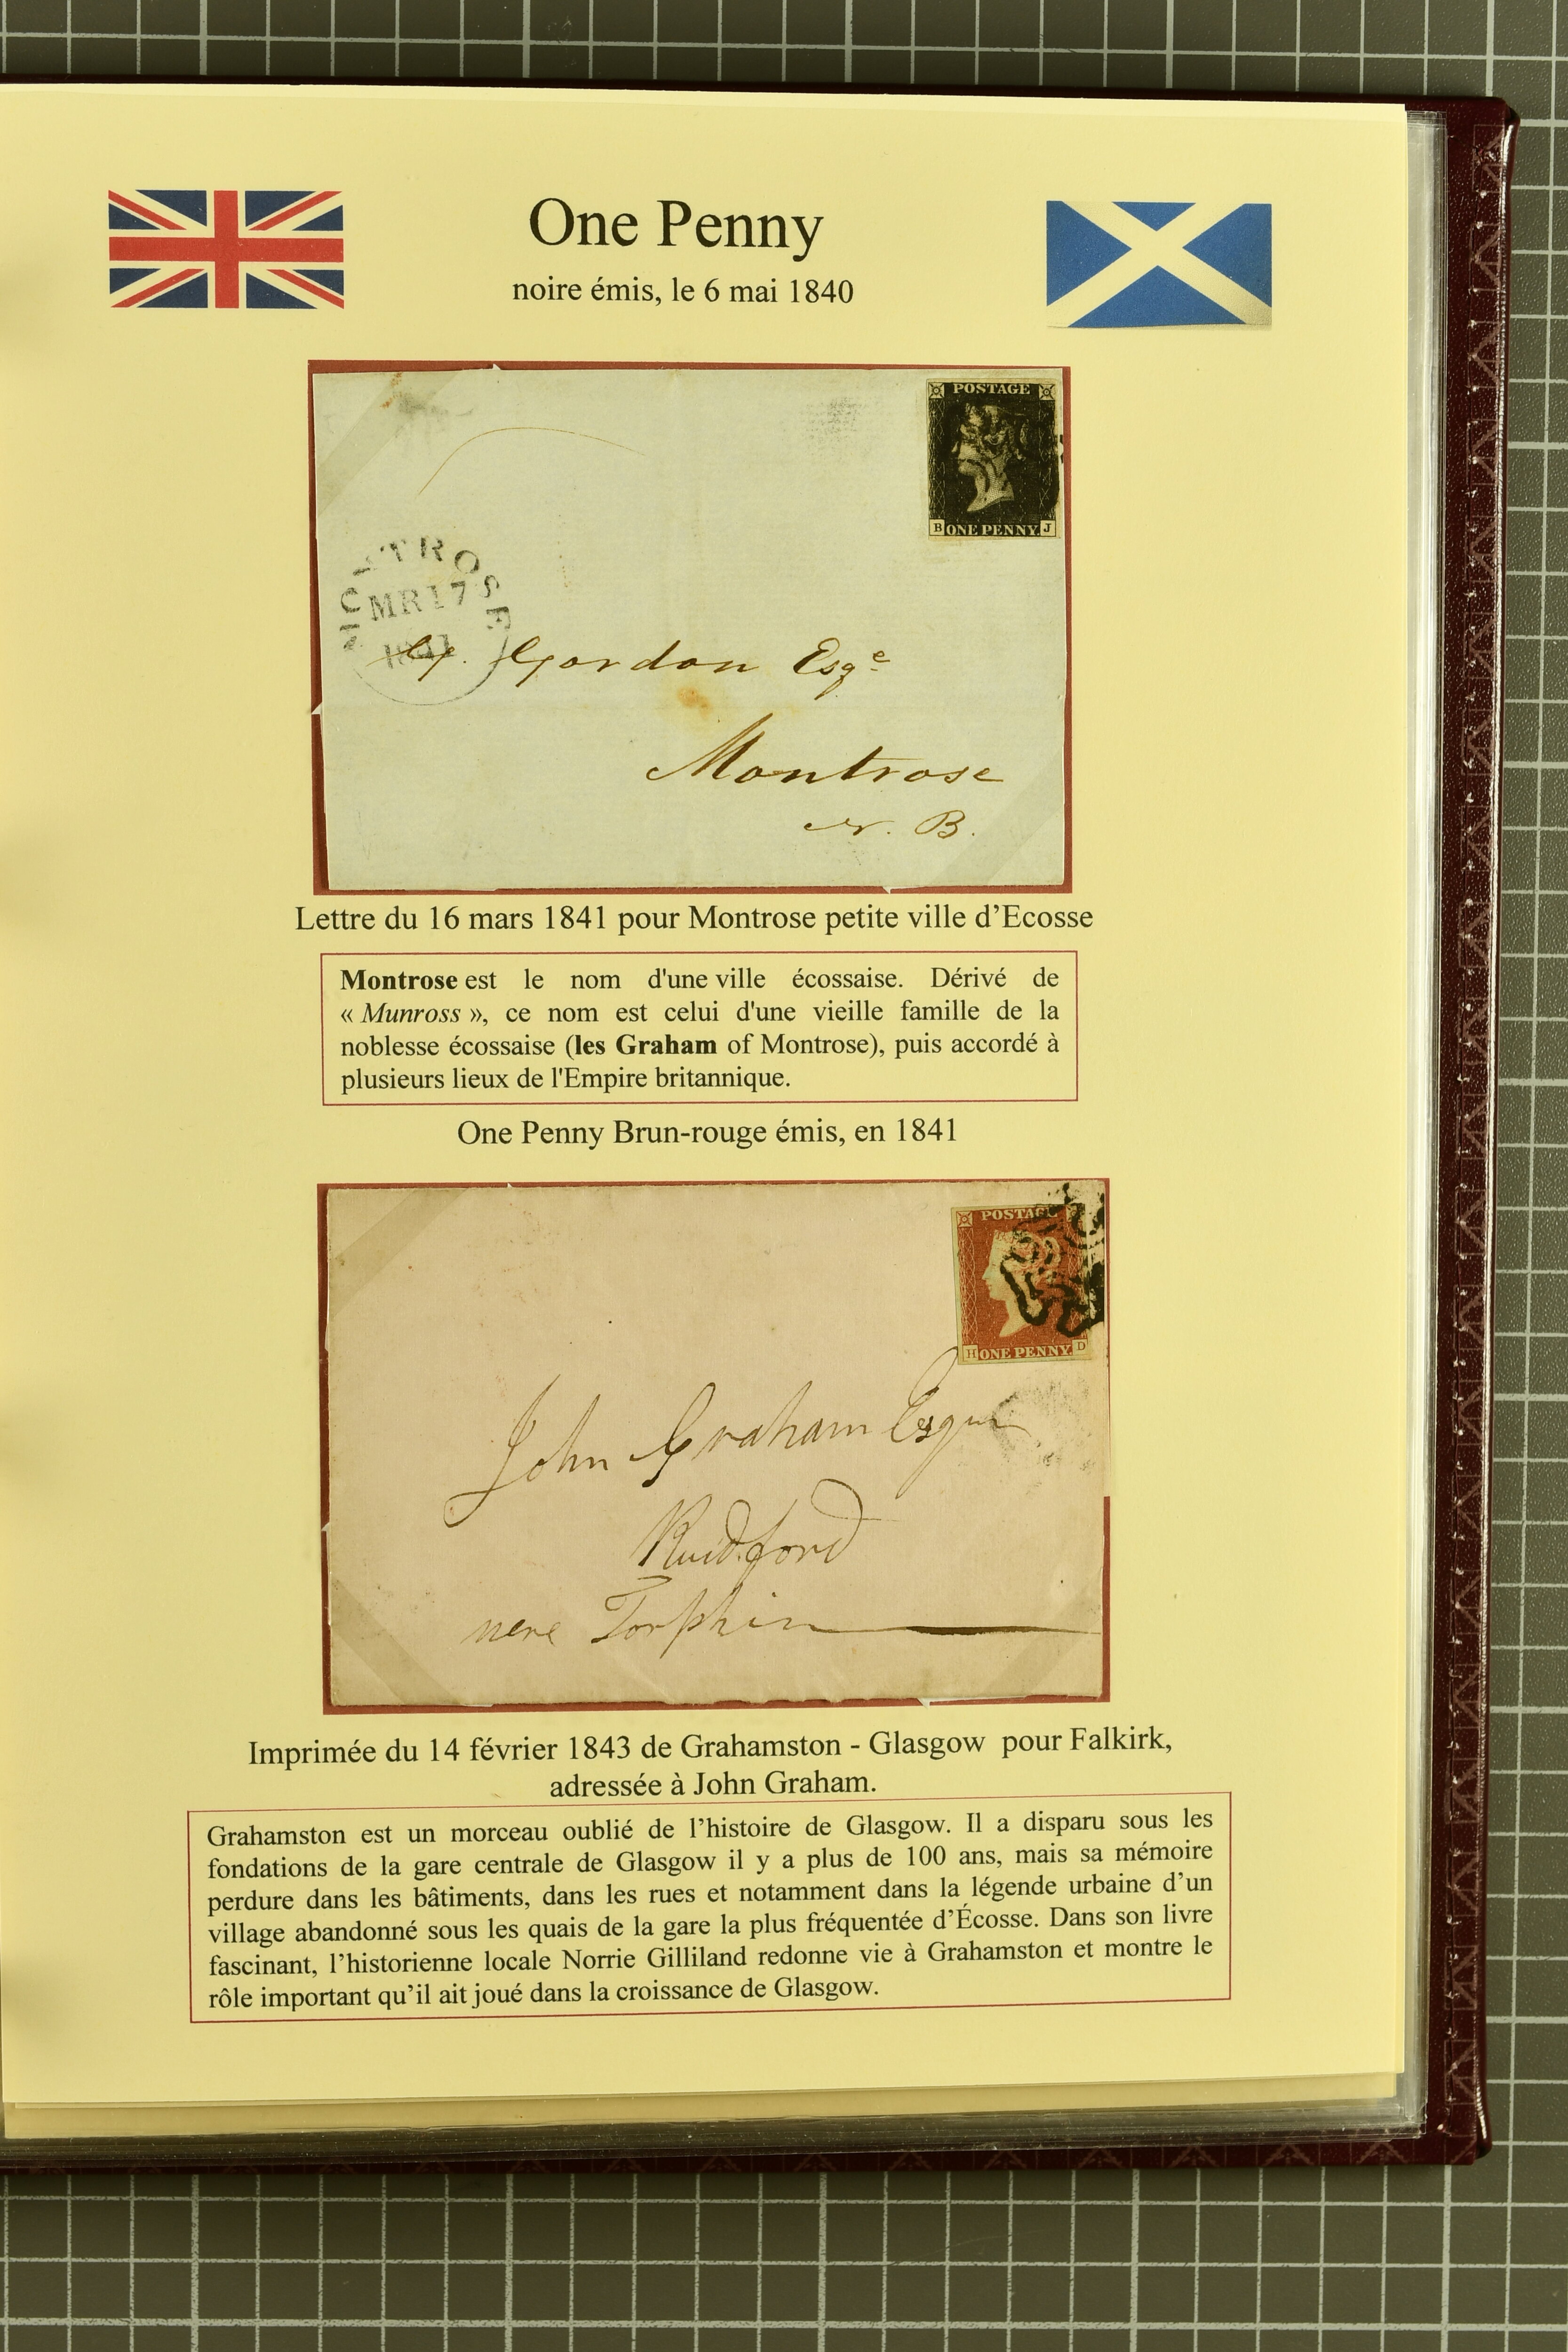 One Penny
noire émis, le 6 mai 1840
POSTAGE
B ONE PENNY J
MONTROSE
MR17
1841
Gordon Esqe
Montrose
N. B.
Lettre du 16 mars 1841 pour Montrose petite ville d’Ecosse
Montrose est le nom d'une ville écossaise. Dérivé de
« Munross », ce nom est celui d'une vieille famille de la
noblesse écossaise (les Graham of Montrose), puis accordé à
plusieurs lieux de l'Empire britannique.
One Penny Brun-rouge émis, en 1841
POSTAGE
H ONE PENNY D
John Graham Esqur
nere Torphin
Imprimée du 14 février 1843 de Grahamston - Glasgow pour Falkirk,
adressée à John Graham.
Grahamston est un morceau oublié de l’histoire de Glasgow. Il a disparu sous les
fondations de la gare centrale de Glasgow il y a plus de 100 ans, mais sa mémoire
perdure dans les bâtiments, dans les rues et notamment dans la légende urbaine d’un
village abandonné sous les quais de la gare la plus fréquentée d’Écosse. Dans son livre
fascinant, l’historienne locale Norrie Gilliland redonne vie à Grahamston et montre le
rôle important qu’il ait joué dans la croissance de Glasgow.